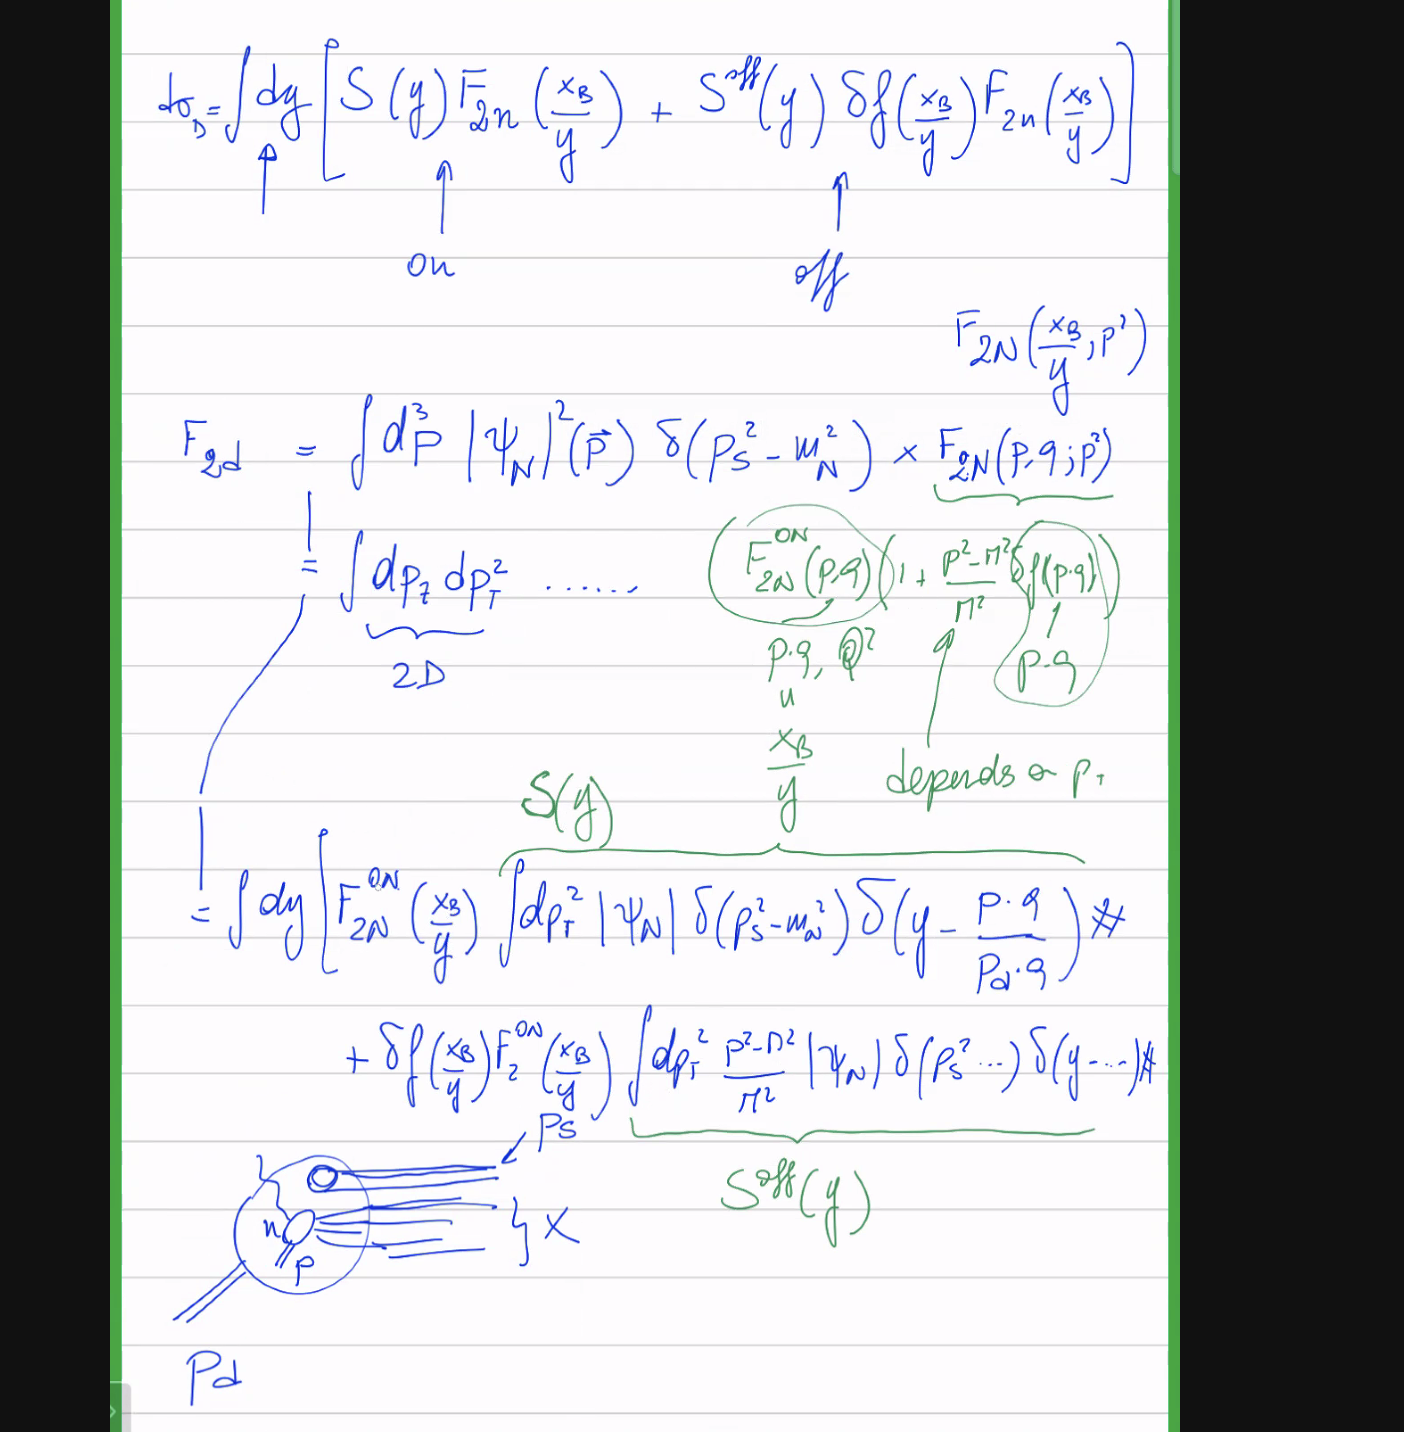 dσ_D = ∫ dy [ S(y) F_2n (x_B/y) + S^off (y) δf (x_B/y) F_2n (x_B/y) ]
on off
F_2N (x_B/y ; p²)
F_2d = ∫ d³p |ψ_N|² (p⃗) δ(p_S² - m_N²) × F_2N (p·q ; p²)
= ∫ dp_z dp_T² ...... (F_2N^ON (p·q) (1 + (p²-M²)/M² δf(p·q))
2D p·q, Q² p·q
"
x_B/y depends on p_T
S(y)
= ∫ dy [ F_2N^ON (x_B/y) ∫ dp_T² |ψ_N| δ(p_S² - m_N²) δ(y - p·q/p_d·q) #
+ δf (x_B/y) F_2^ON (x_B/y) ∫ dp_T² (p²-M²)/M² |ψ_N| δ(p_S² ...) δ(y - ...) #
p_S
S^off (y)
n } X
p
P_d